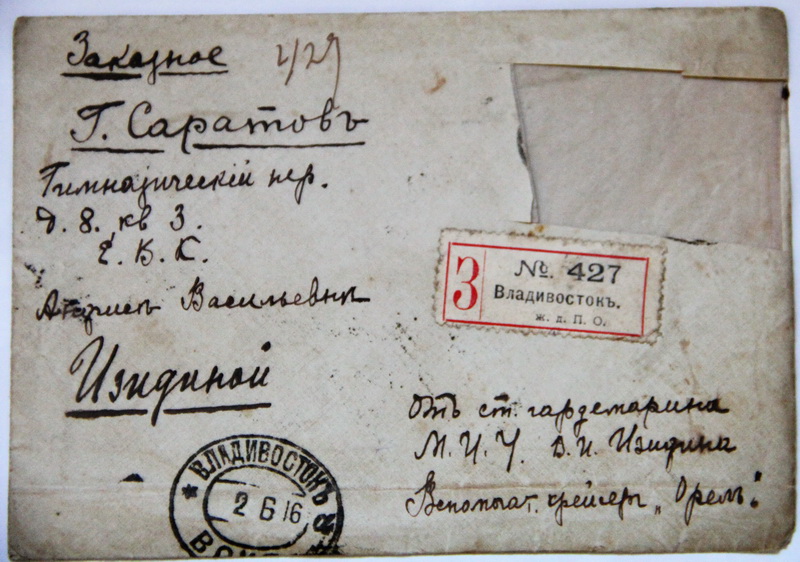 Заказное 1/29
Г. Саратовъ
Гимназическій пер.
д. 8. кв 3.
Е. В. К.
Васильевнѣ
Изидиной
З
№. 427
Владивостокъ.
ж. д. П. О.
Отъ ст. гардемарина
М. И. У. В. И. Изидина
Вспомогат. крейсеръ „Орелъ".
* ВЛАДИВОСТОКЪ
2 6 16
ВОКЗ